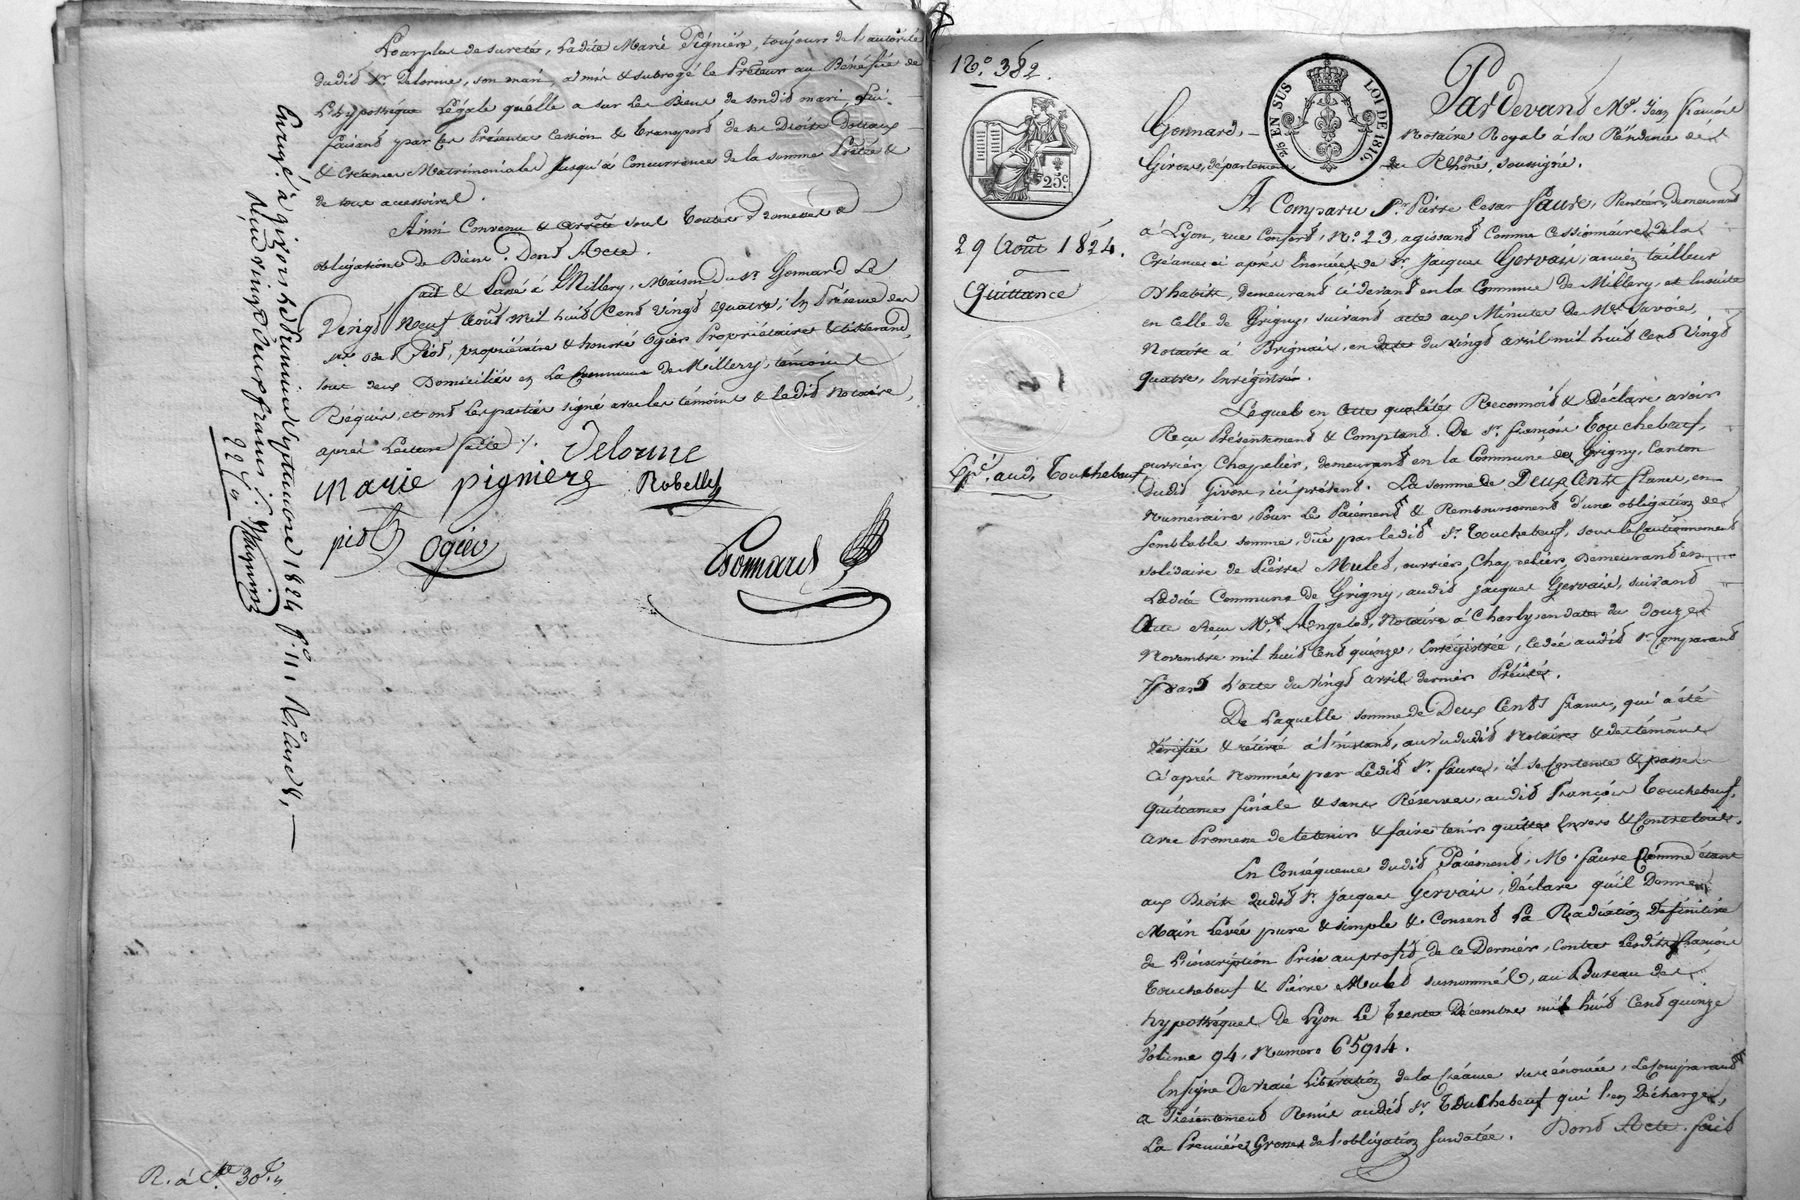 Pour plus de sureté, Ladite Marie Pignière, toujours de l'autorité
dudit Sr. Delorme, son mari, a mis & subrogé le Prêteur au Bénéfice de
L'hypothèque Légale qu'elle a sur les Biens de sondit mari, Lui
faisant par les Présentes Cession & Transport de ses Droits Dotaux
& Créances Matrimoniales jusqu'à Concurrence de la somme Prêtée &
de tous accessoires.
Ainsi Convenu & arrêté sous toutes Promesses &
obligations de Biens. Dont Acte.
Fait & Passé à Millery, Maison du Sr. Gonnard Le
Vingt Neuf Août Mil huit Cent Vingt quatre; En Présence des
Piot, propriétaire & honoré Ogier Propriétaire & tisserand,
tous deux Domiciliés en La Commune de Millery, témoins
Réquis, et ont les parties signé avec les témoins & Ledit Notaire,
après Lecture faite ./.
Delorme
Marie pigniere Robelly
piot Ogier
Gonnard
Enregé. à givors le Trente août 1824 fo. 111 Ro. case 8,
Reçu vingt deux francs
R. à Cte. 30 f.
No. 382.
25 EN SUS LOI DE 1816.
25c.
29 Août 1824.
Quittance
Expé. aud. Touchebeuf
Pardevant Me. Jean françois
Gonnard, Notaire Royal à la Résidence de
Givors, département du Rhône, soussigné.
A Comparu Sr. Pierre Cesar Faure, Rentier, Demeurant
à Lyon, rue Confort, No. 23, agissant Comme Cessionnaire de la
Créance ci après Enoncée, de Sr. Jacques Gervais, ancien tailleur
D'habits, demeurant ci devant en la Commune de Millery, et Ensuite
en Celle de Grigny, suivant acte aux Minutes de Me. Savoie,
Notaire à Brignais, en date du vingt avril mil huit Cent Vingt
quatre, Enrégistré.
Lequel en Cette qualité Reconnoit & Déclare avoir
Reçu Présentement & Comptant. De Sr. françois Touchebeuf,
ouvrier Chapelier, demeurant en la Commune de Grigny, Canton
Dudit Givors, ici présent. La somme de Deux Cents francs, en
Numéraire, Pour Le Paiement & Remboursement d'une obligation de
semblable somme, duë par ledit Sr. Touchebeuf, sous le Cautionnement
solidaire de Pierre Mulet, ouvrier Chapelier, Demeurant en
Ladite Commune de Grigny, audit Jacques Gervais, suivant
Acte Reçu Me. Angelot, Notaire à Charly, en date du Douze
Novembre mil huit Cent quinze, Enrégistrée, Cédée audit Sr. Comparant
Par L'acte du Vingt avril dernier Précité.
De Laquelle somme de Deux Cents francs, qui a été
Vérifiée & rétirée à l'instant, au Vu dudit Notaire & des témoins
Ci après Nommés par Ledit Sr. Faure, il se Contente & passe
Quittance finale & sans Réserve, audit François Touchebeuf,
avec Promesse de le tenir & faire tenir quitte Envers & Contre tous.
En Conséquence dudit Paiement, M. Faure Comme étant
aux Droits dudit Sr. Jacques Gervais, déclare qu'il Donne
Main Levée pure & simple & Consent La Radiation Définitive
de L'inscription Prise au profit de ce Dernier, Contre Lesdits françois
Touchebeuf & Pierre Mulet surnommés, au Bureau des
hypothèques de Lyon Le Trente Décembre mil huit Cent quinze
Volume 94, Numero 65914.
En signe De vraie Libération de la Créance sus énoncée, Le Comparant
a Présentement Remis audit Sr. Touchebeuf qui l'en Décharge,
La Premiere Grosse de l'obligation susdatée. Dont Acte. fait